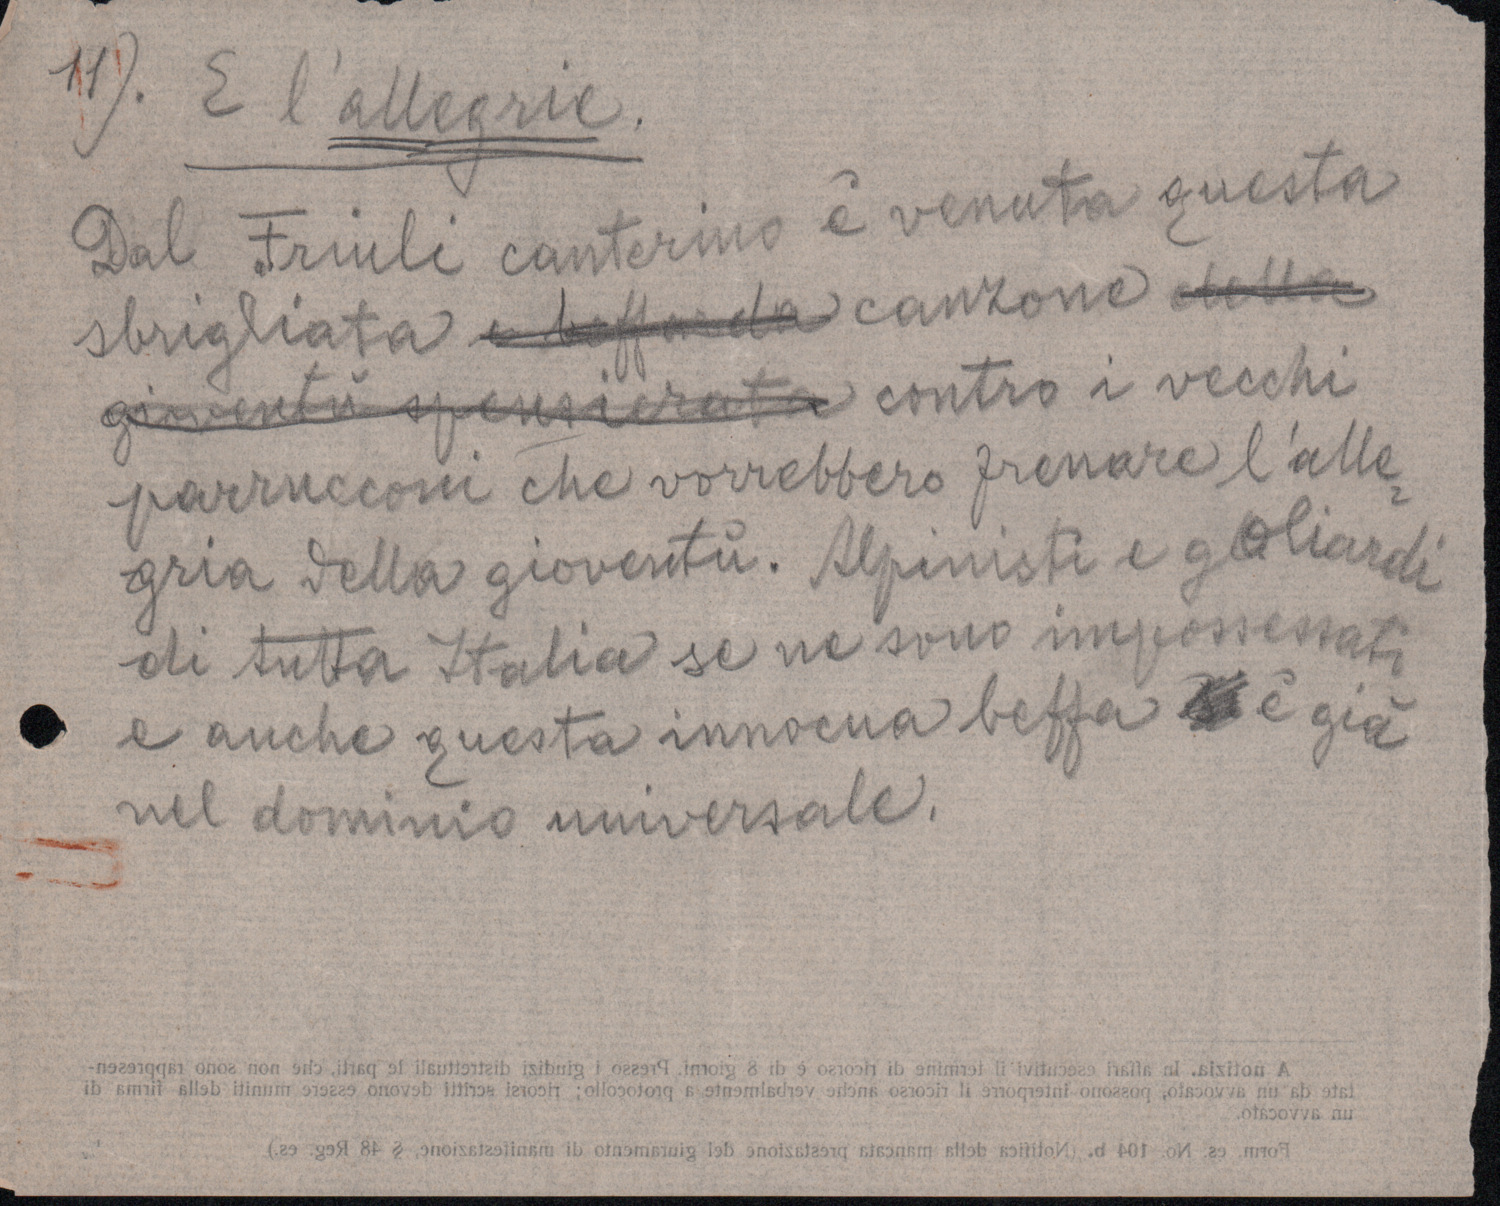 11). E l'allegrie.
Dal Friuli canterino è venuta questa
sbrigliata e beffarda canzone della
gioventù spensierata contro i vecchi
parrucconi che vorrebbero frenare l'alle=
gria della gioventù. Alpinisti e goliardi
di tutta Italia se ne sono impossessati
e anche questa innocua beffa è già
nel dominio universale.
A notizia. In affari esecutivi il termine di ricorso è di 8 giorni. Presso i giudizi distrettuali le parti, che non sono rappresen-
tate da un avvocato, possono interporre il ricorso anche verbalmente a protocollo; ricorsi scritti devono essere muniti della firma di
un avvocato.
Form. es. No. 104 b. (Notifica della mancata prestazione del giuramento di manifestazione, § 48 Reg. es.)